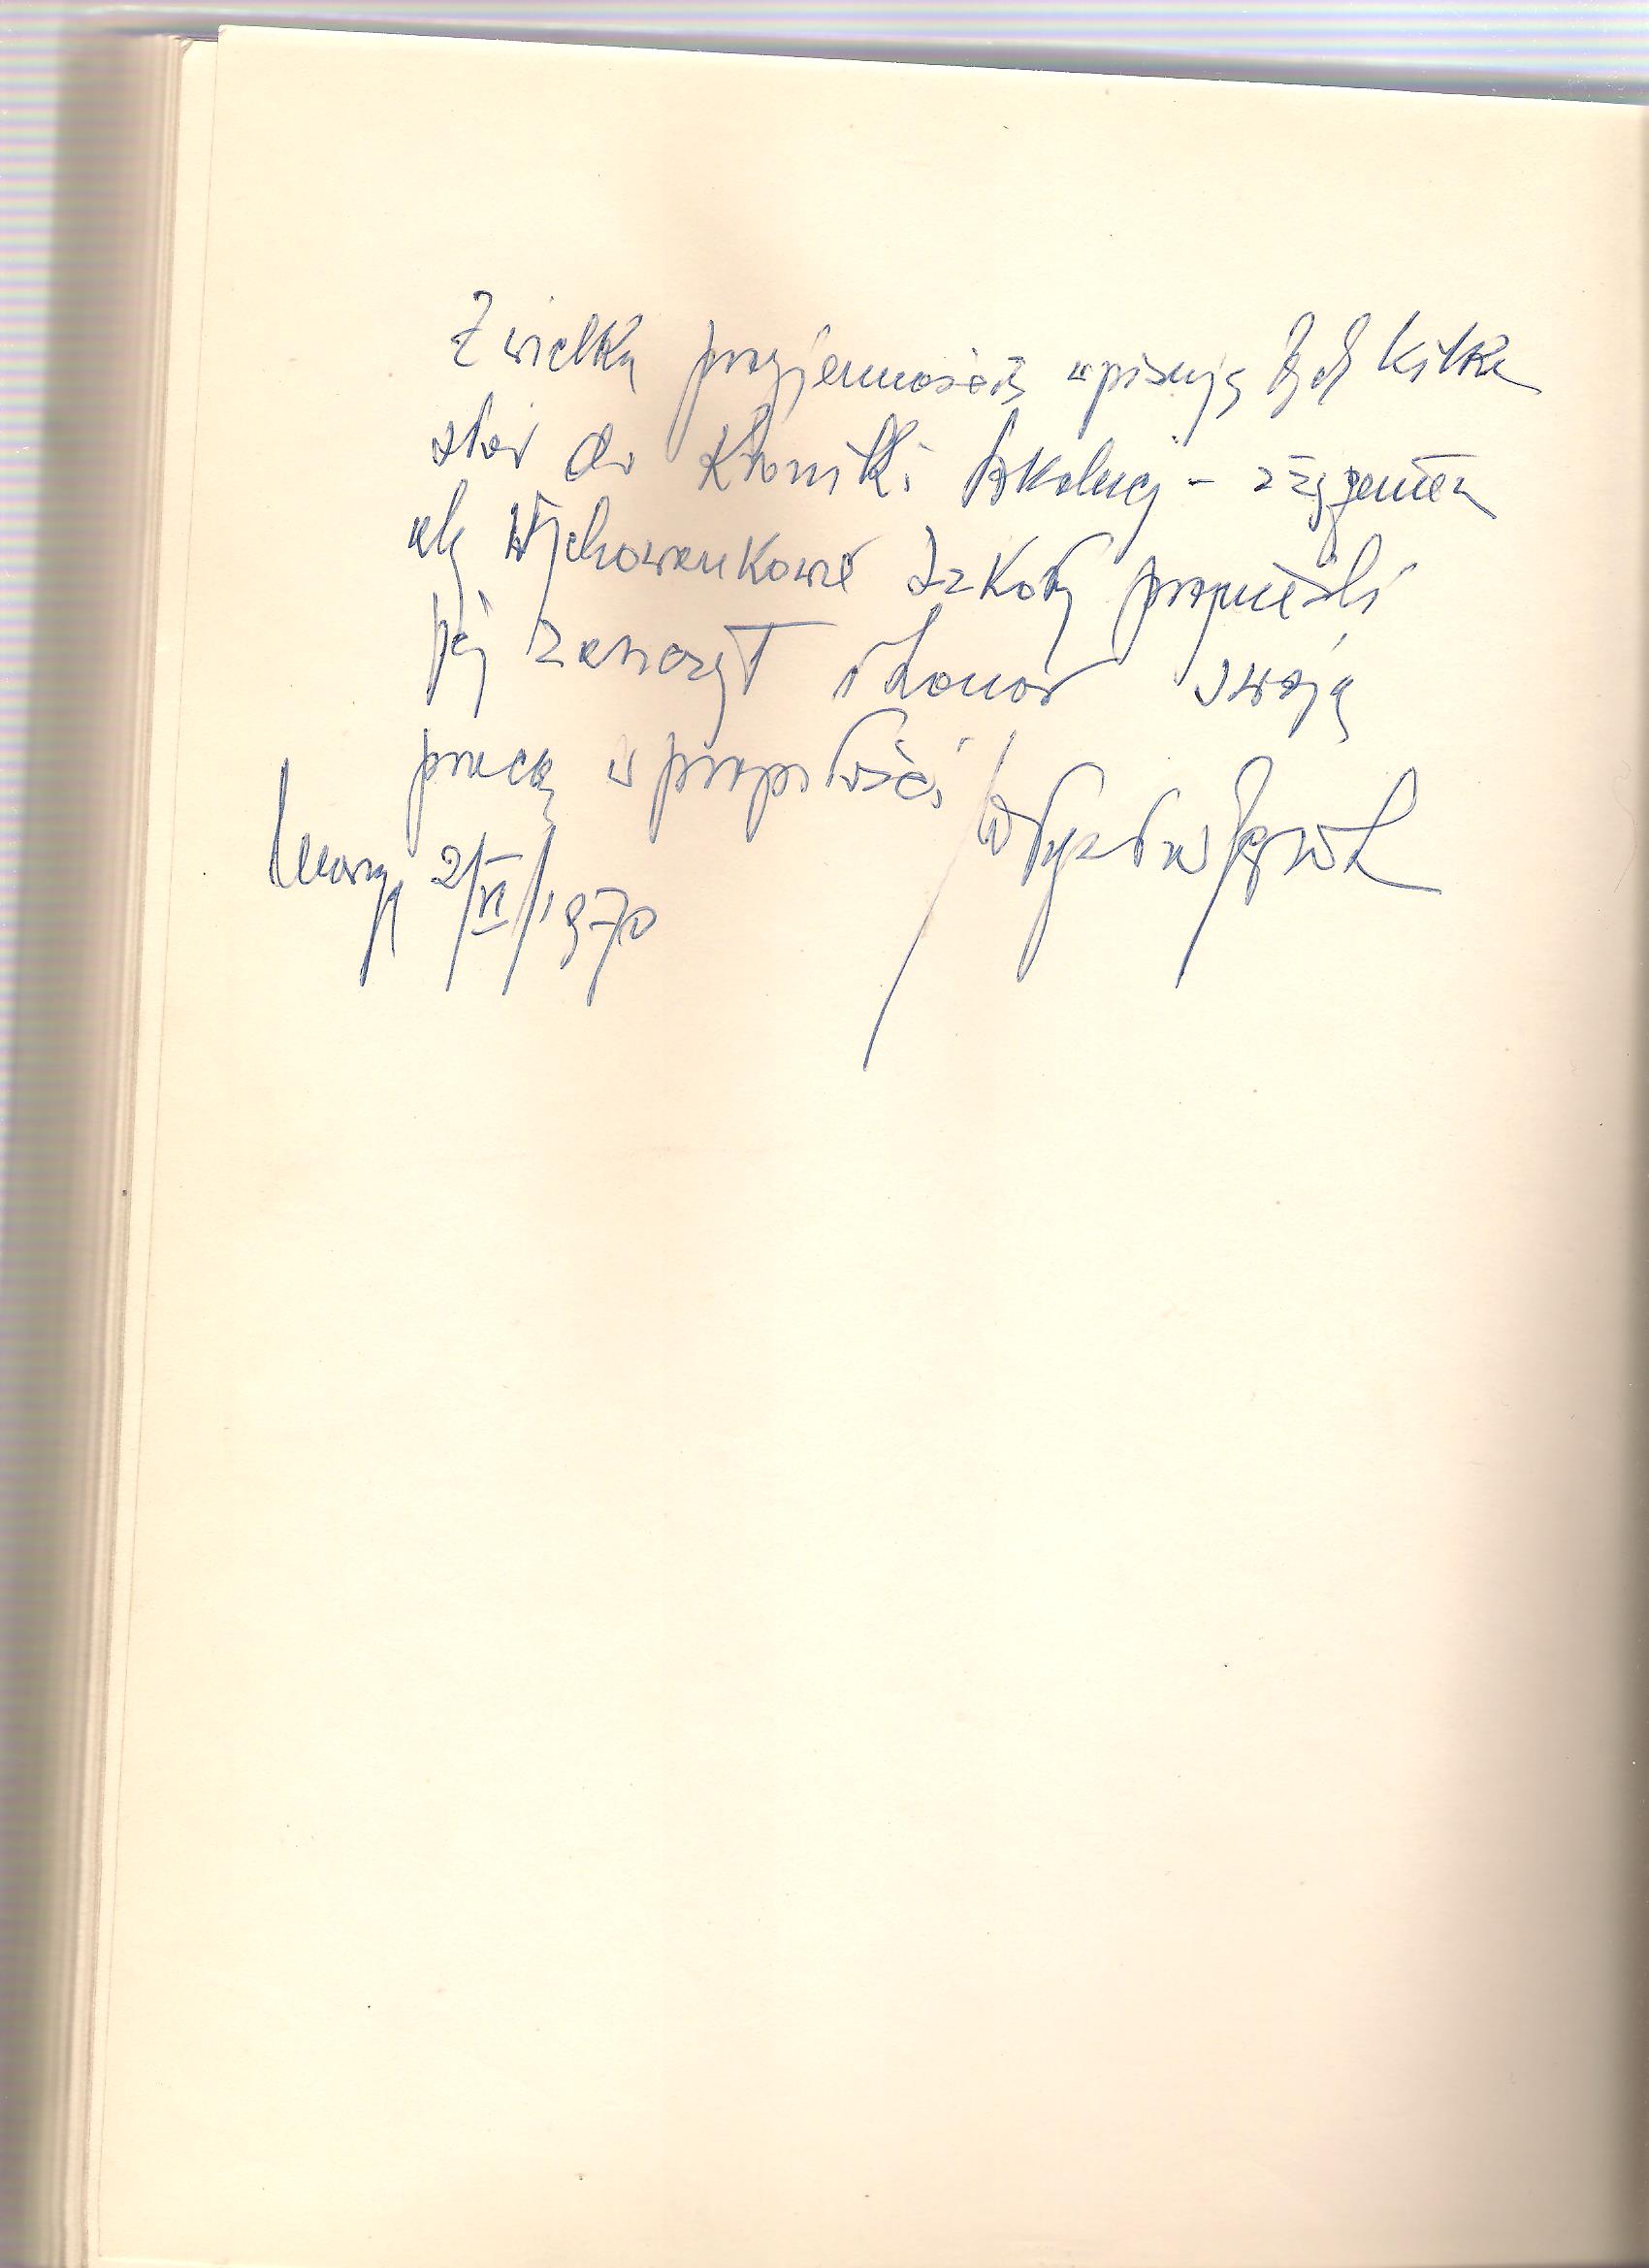 Z wielką przyjemnością wpisuję tych kilka
słów do Kroniki Szkolnej - z życzeniem
aby Wychowankowie Szkoły przynieśli
jej zaszczyt i honor swoją
pracą w przyszłości
2/VI/1970